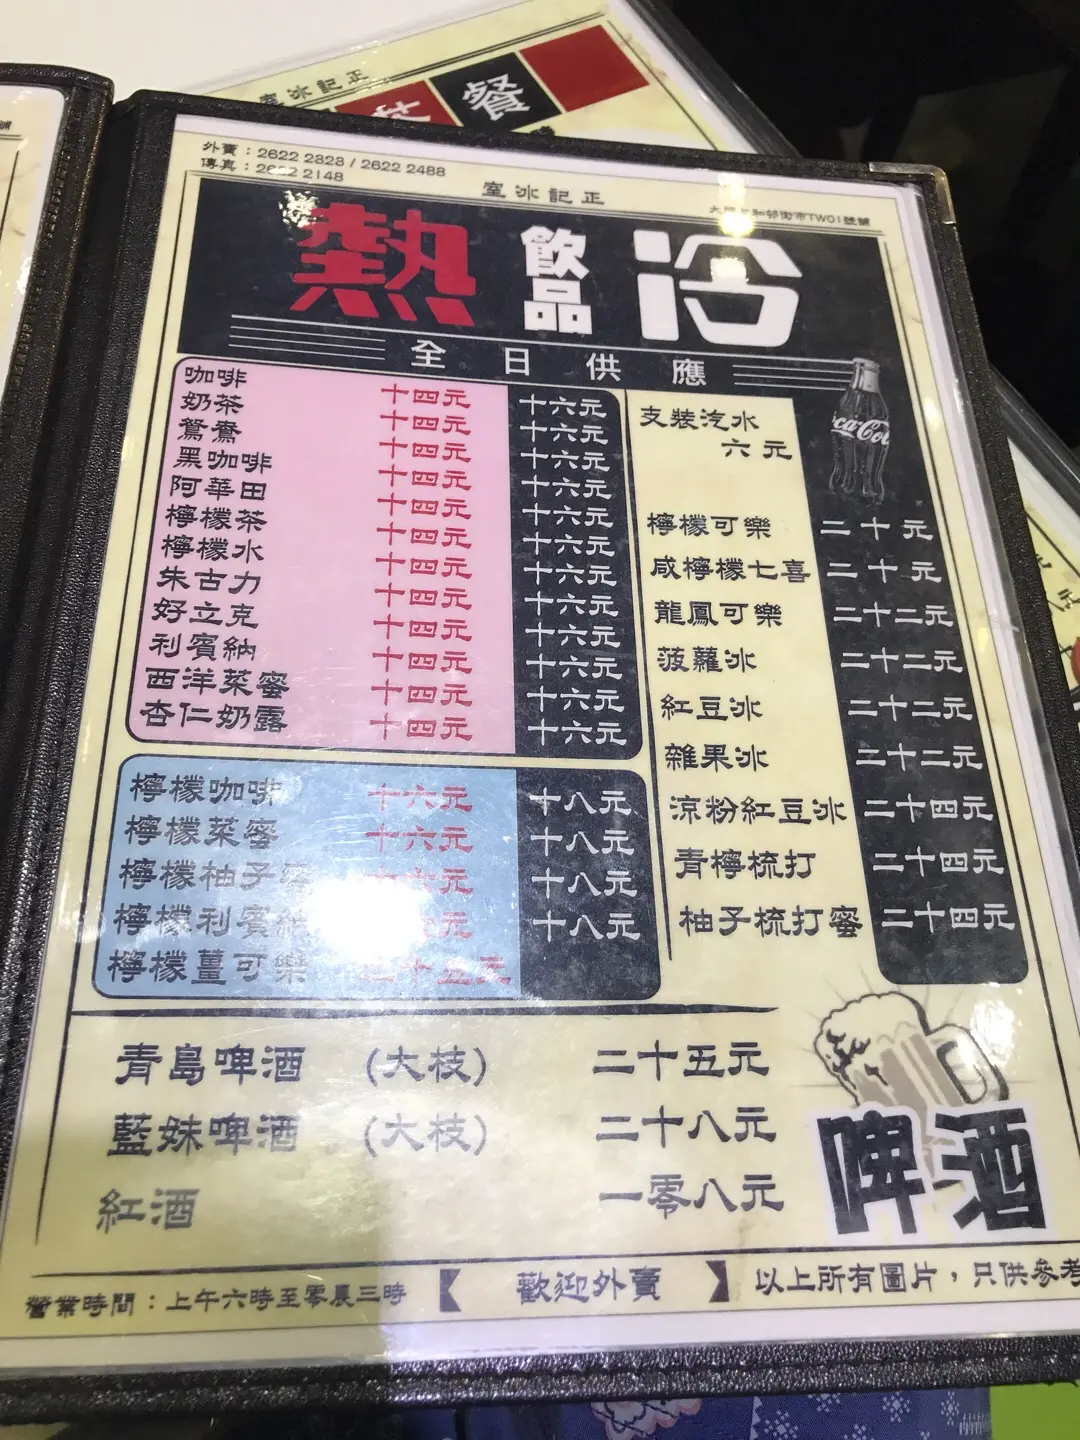 正記冰室
茶餐
外賣：2622 2323 / 2622 2488
傳真：2622 2148
室冰記正
和邨街市TW01號舖
熱 飲品 冷
全日供應
咖啡 十四元 十六元
奶茶 十四元 十六元
鴛鴦 十四元 十六元
黑咖啡 十四元 十六元
阿華田 十四元 十六元
檸檬茶 十四元 十六元
檸檬水 十四元 十六元
朱古力 十四元 十六元
好立克 十四元 十六元
利賓納 十四元 十六元
西洋菜蜜 十四元 十六元
杏仁奶露 十四元 十六元
檸檬咖啡 十六元 十八元
檸檬菜蜜 十六元 十八元
檸檬柚子 十六元 十八元
檸檬利賓納 元 十八元
檸檬薑可樂 二十五元
支裝汽水
六元
ca-Col
檸檬可樂 二十元
咸檸檬七喜 二十元
龍鳳可樂 二十二元
菠蘿冰 二十二元
紅豆冰 二十二元
雜果冰 二十二元
涼粉紅豆冰 二十四元
青檸梳打 二十四元
柚子梳打蜜 二十四元
青島啤酒 (大枝) 二十五元
藍妹啤酒 (大枝) 二十八元
紅酒 一零八元
啤酒
營業時間：上午六時至零晨三時
歡迎外賣
以上所有圖片，只供參考